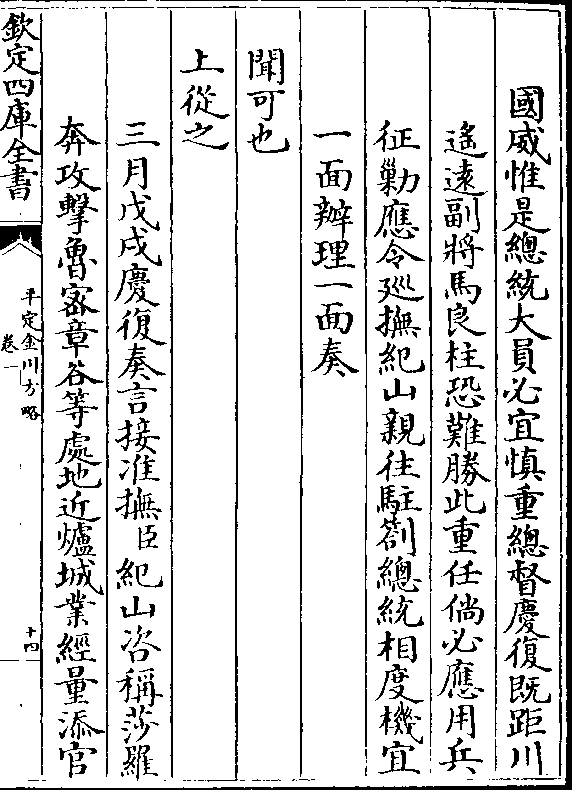 國威惟是總統大員必宜慎重總督慶復既距川
遙遠副將馬良柱恐難勝此重任倘必應用兵
征勦應令廵撫紀山親往駐劄總統相度機宜
一面辦理一面奏
聞可也
上從之
三月戊戌慶復奏言接准撫臣紀山咨稱莎羅
奔攻擊魯宻章谷等處地近爐城業經量添官
欽定四庫全書
平定金川方略
卷一
十四